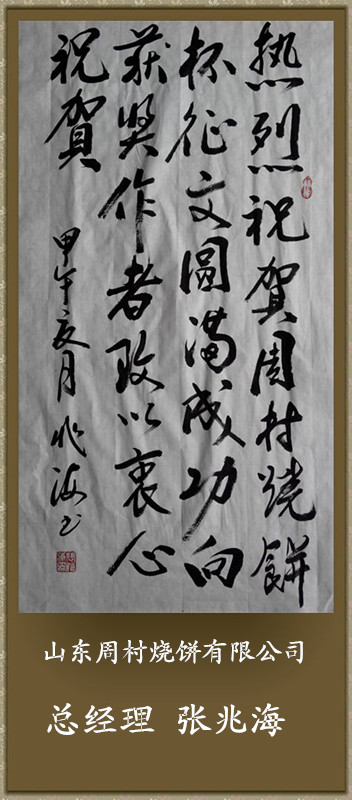 热烈祝賀周村燒餅
杯征文圓満成功向
获奖作者致以衷心
祝賀
甲午亥月兆海书
山东周村烧饼有限公司
总经理 张兆海